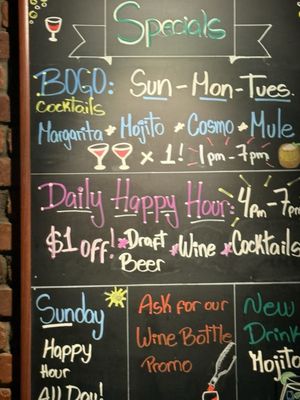 Specials
BOGO: Sun - Mon - Tues.
Cocktails
Margarita * Mojito * Cosmo * Mule
x 1! 1pm - 7pm
Daily Happy Hour: 4pm - 7pm
$1 off! * Draft Beer * Wine * Cocktails
Sunday
Happy
Hour
All Day!
Ask for our
Wine Bottle
Promo
New
Drink
Mojito